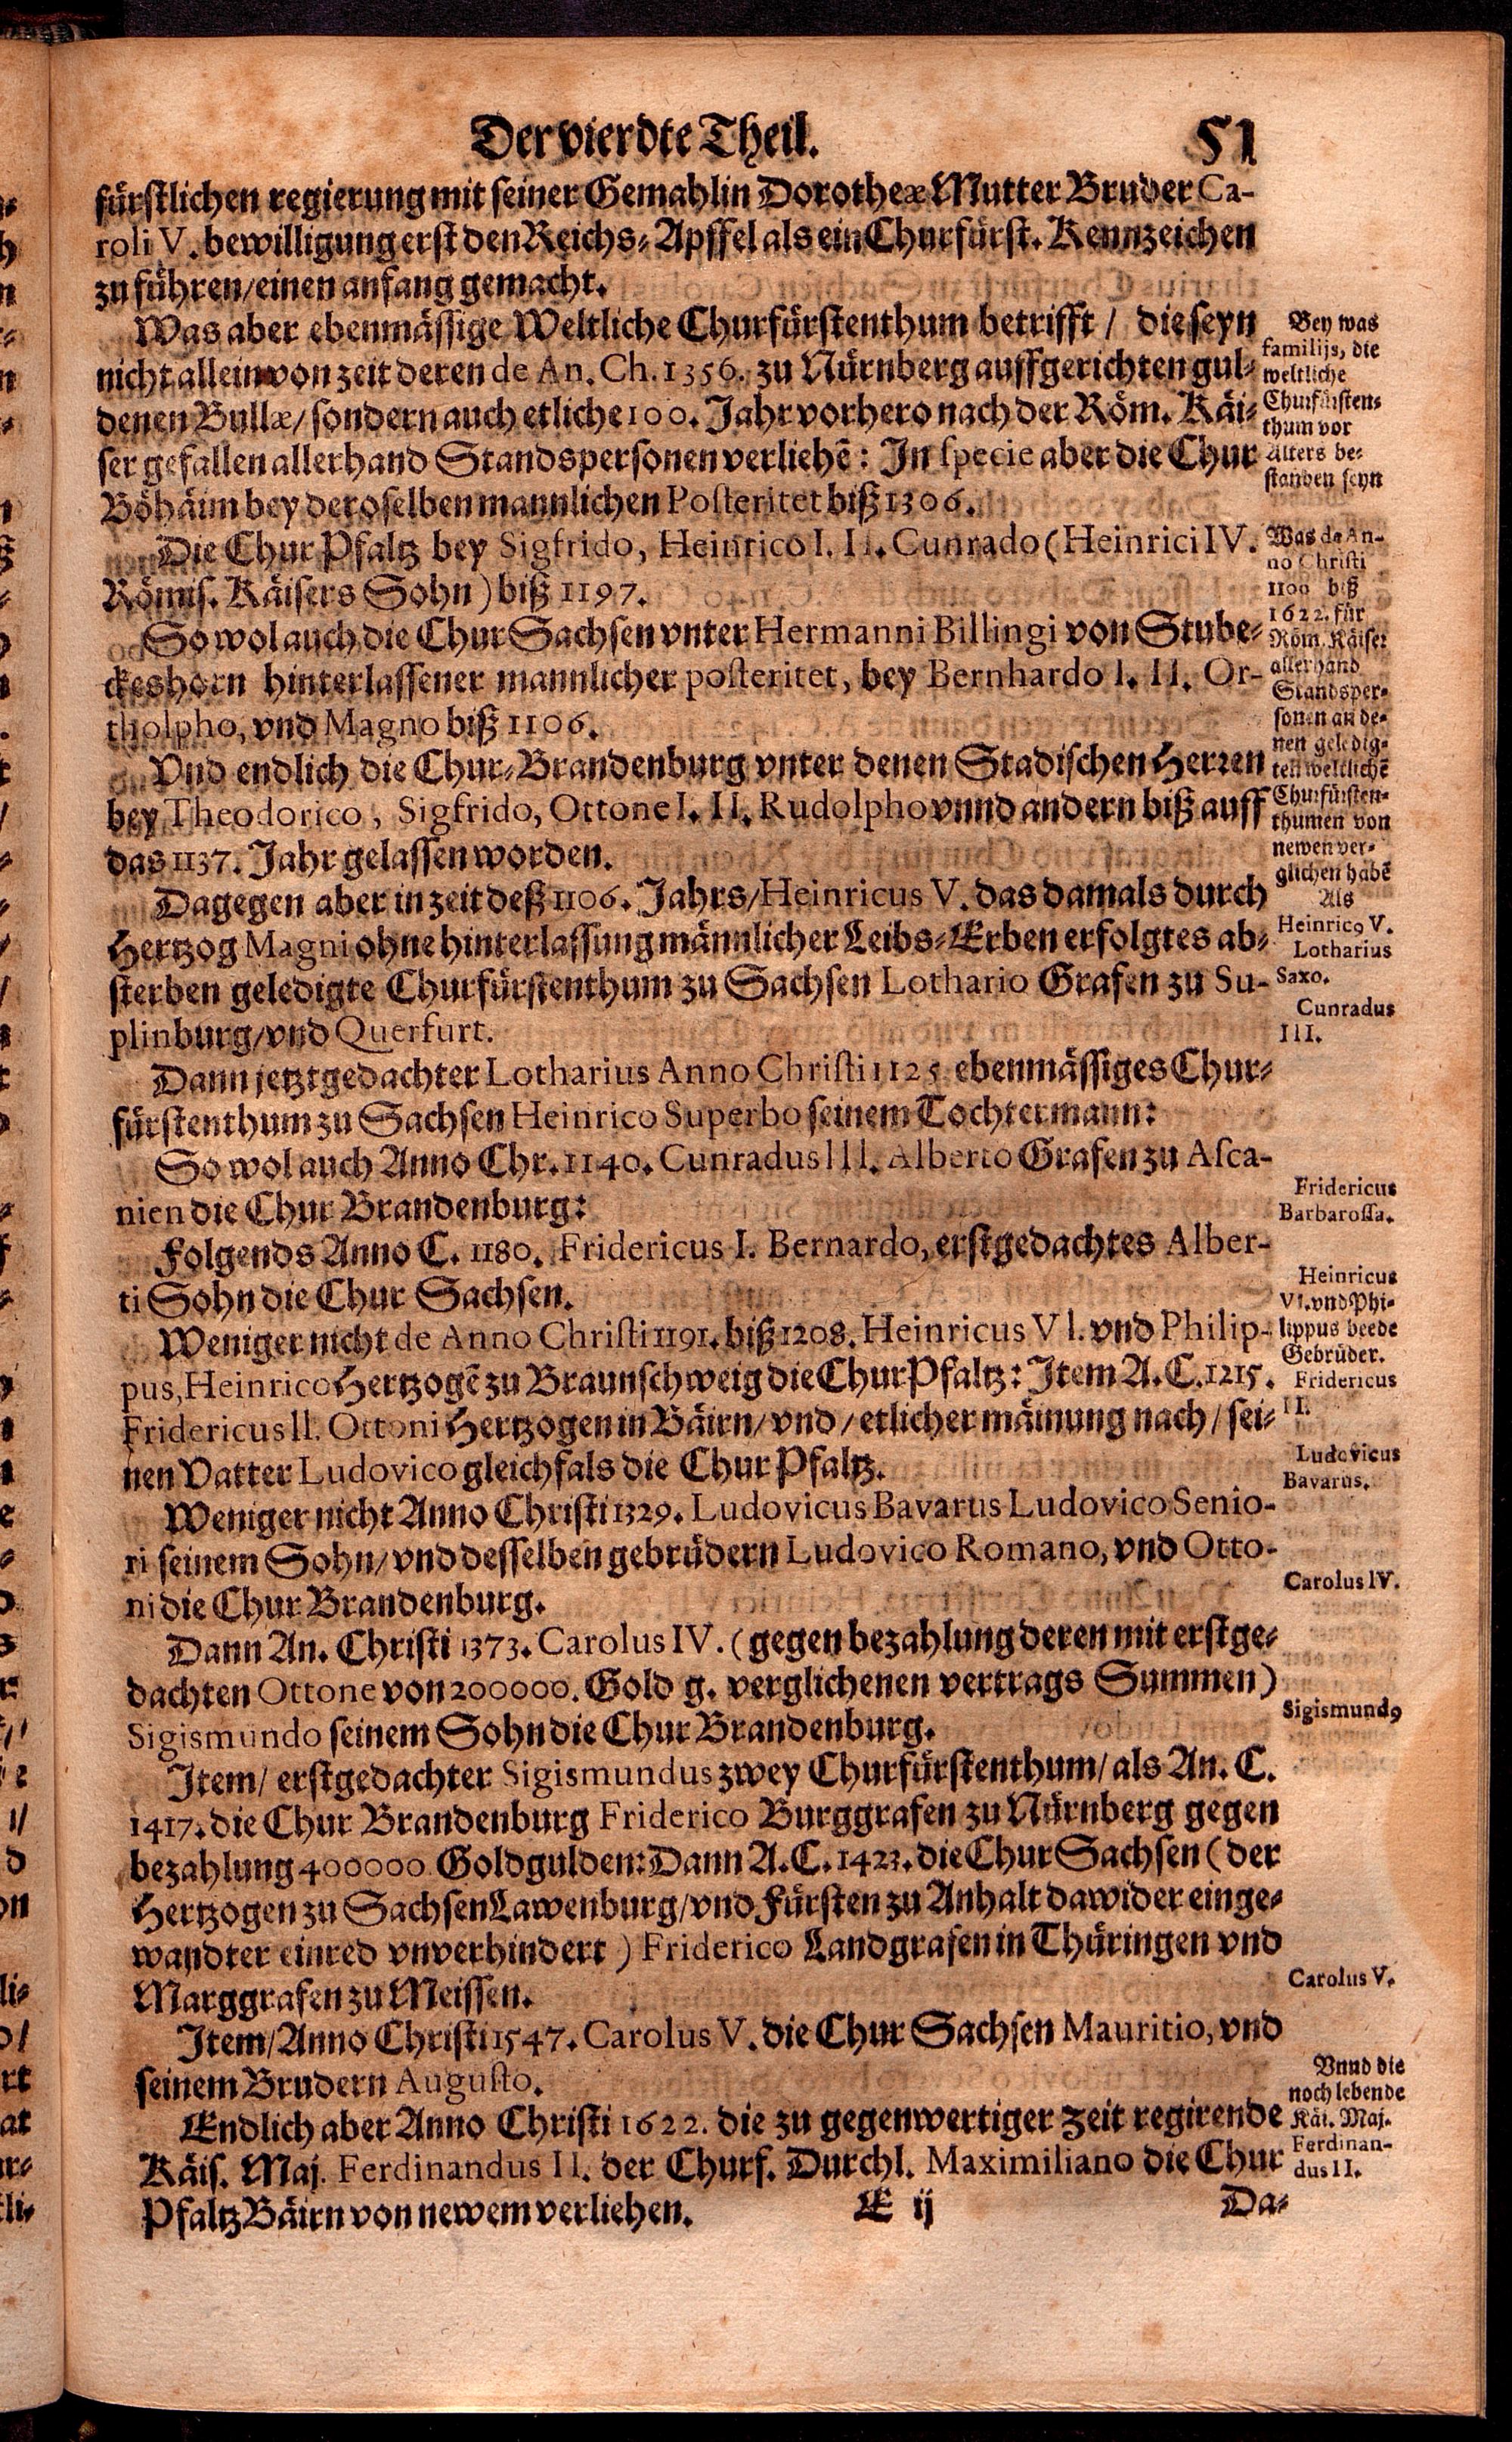 Der vierdte Theil. 51
fürstlichen regierung mit seiner Gemahlin Dorotheæ Mutter Bruder Ca-
roli V. bewilligung erst den Reichs-Apffel als ein Churfürst. Kennzeichen
zu führen/einen anfang gemacht.
Was aber ebenmässige Weltliche Churfürstenthum betrifft / die seyn
nicht allein von zeit deren de An. Ch. 1356. zu Nürnberg auffgerichten gul-
denen Bullæ/ sondern auch etliche 100. Jahr vorhero nach der Röm. Käi-
ser gefallen allerhand Standspersonen verliehē: In specie aber die Chur
Böhäim bey deroselben mannlichen Posteritet biß 1306.
Bey was
familijs, die
weltliche
Churfürsten-
thum vor
Alters be-
standen seyn
Die Chur Pfaltz bey Sigfrido, Heinrico I. II. Cunrado (Heinrici IV.
Römis. Käisers Sohn) biß 1197.
So wol auch die Chur Sachsen vnter Hermanni Billingi von Stube-
ckeshorn hinterlassener mannlicher posteritet, bey Bernhardo I. II. Or-
tholpho, vnd Magno biß 1106.
Vnd endlich die Chur-Brandenburg vnter denen Stadischen Herren
bey Theodorico, Sigfrido, Ottone I. II. Rudolpho vnnd andern biß auff
das 1137. Jahr gelassen worden.
Was de An-
no Christi
1100 biß
1622. für
Röm. Käiser
allerhand
Standsper-
sonen an de-
nen geledig-
ten weltlichē
Churfürsten-
thumen von
newen ver-
glichen habē
Als
Dagegen aber in zeit deß 1106. Jahrs/Heinricus V. das damals durch
Hertzog Magni ohne hinterlassung männlicher Leibs-Erben erfolgtes ab-
sterben geledigte Churfürstenthum zu Sachsen Lothario Grafen zu Su-
plinburg/vnd Querfurt.
Heinricꝰ V.
Lotharius
Saxo.
Cunradus
III.
Dann jetztgedachter Lotharius Anno Christi 1125 ebenmässiges Chur-
fürstenthum zu Sachsen Heinrico Superbo seinem Tochtermann:
So wol auch Anno Chr. 1140. Cunradus III. Alberto Grafen zu Asca-
nien die Chur Brandenburg:
Fridericus
Barbarossa.
Folgends Anno C. 1180. Fridericus I. Bernardo, erstgedachtes Alber-
ti Sohn die Chur Sachsen.
Weniger nicht de Anno Christi 1191. biß 1208. Heinricus VI. vnd Philip-
pus, Heinrico Hertzogē zu Braunschweig die Chur Pfaltz: Item A. C. 1215.
Fridericus II. Ottoni Hertzogen in Bäirn/ vnd / etlicher mäinung nach / sei-
nen Vatter Ludovico gleichfals die Chur Pfaltz.
Heinricus
VI. vnd Phi-
lippus beede
Gebrüder.
Fridericus
II.
Ludovicus
Bavarus.
Weniger nicht Anno Christi 1329. Ludovicus Bavarus Ludovico Senio-
ri seinem Sohn/ vnd desselben gebrüdern Ludovico Romano, vnd Otto-
ni die Chur Brandenburg.
Carolus IV.
Dann An. Christi 1373. Carolus IV. (gegen bezahlung deren mit erstge-
dachten Ottone von 200000. Gold g. verglichenen vertrags Summen)
Sigismundo seinem Sohn die Chur Brandenburg.
Sigismundꝰ
Item/ erstgedachter Sigismundus zwey Churfürstenthum/ als An. C.
1417. die Chur Brandenburg Friderico Burggrafen zu Nürnberg gegen
bezahlung 400000 Goldgulden: Dann A. C. 1423. die Chur Sachsen (der
Hertzogen zu Sachsen Lawenburg/vnd Fürsten zu Anhalt dawider einge-
wandter einred vnverhindert) Friderico Landgrafen in Thüringen vnd
Marggrafen zu Meissen.
Carolus V.
Item/Anno Christi 1547. Carolus V. die Chur Sachsen Mauritio, vnd
seinem Brudern Augusto.
Endlich aber Anno Christi 1622. die zu gegenwertiger zeit regirende
Käis. Maj. Ferdinandus II. der Churf. Durchl. Maximiliano die Chur
Pfaltz Bäirn von newem verliehen.
Vnnd die
noch lebende
Käi. Maj.
Ferdinan-
dus II.
E ij Da-